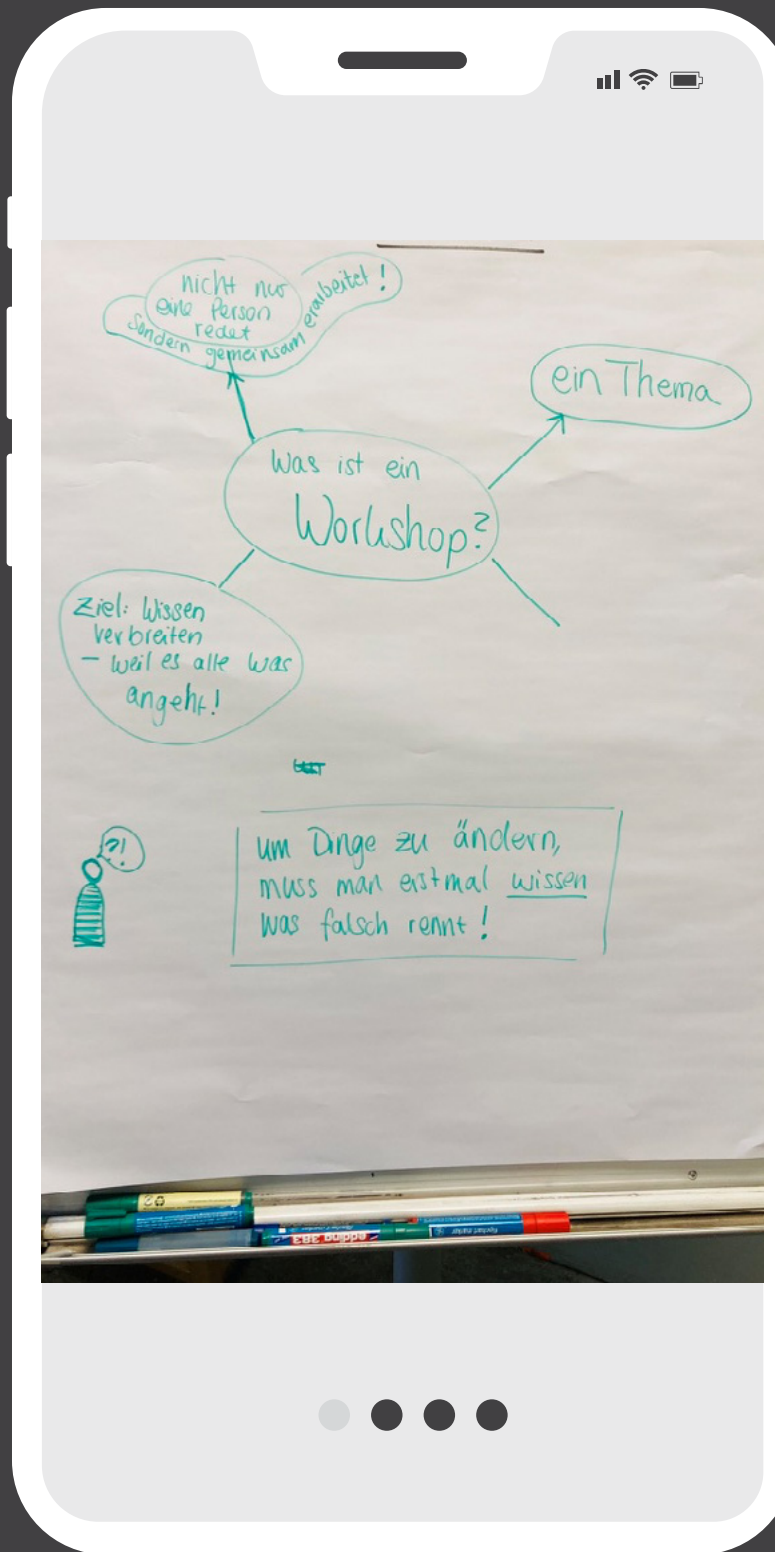 nicht nur
eine Person
redet
sondern gemeinsam erarbeitet!
ein Thema
Was ist ein
Workshop?
Ziel: Wissen
verbreiten
- weil es alle was
angeht!
?!
um Dinge zu ändern,
muss man erstmal wissen
was falsch rennt!
edding 383